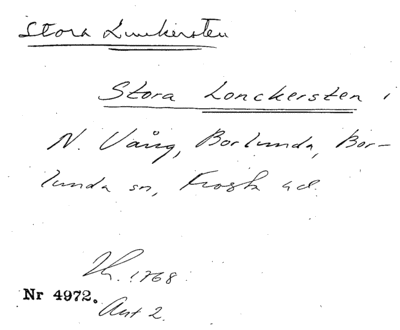 Stora Lunkersten
Stora Lonckersten i
N. Vång, Borlunda, Bor-
lunda sn, Frosta hd.
1768.
Nr 4972.
Akt 2.